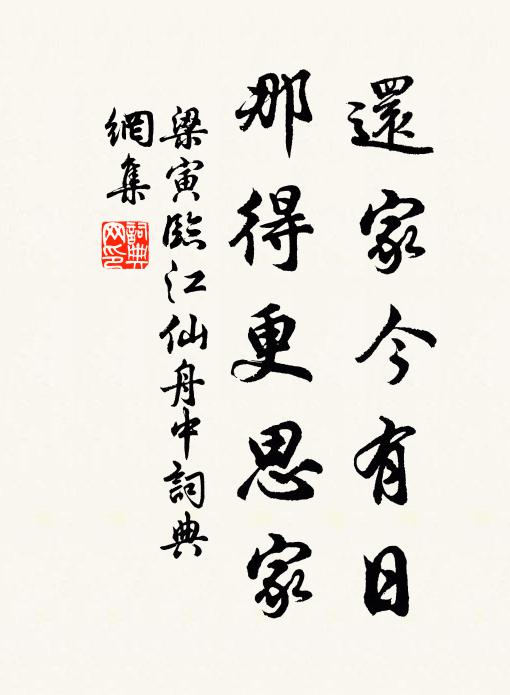 還家今有日
那得更思家
梁寅臨江仙舟中詞典
網集
詞典
网印